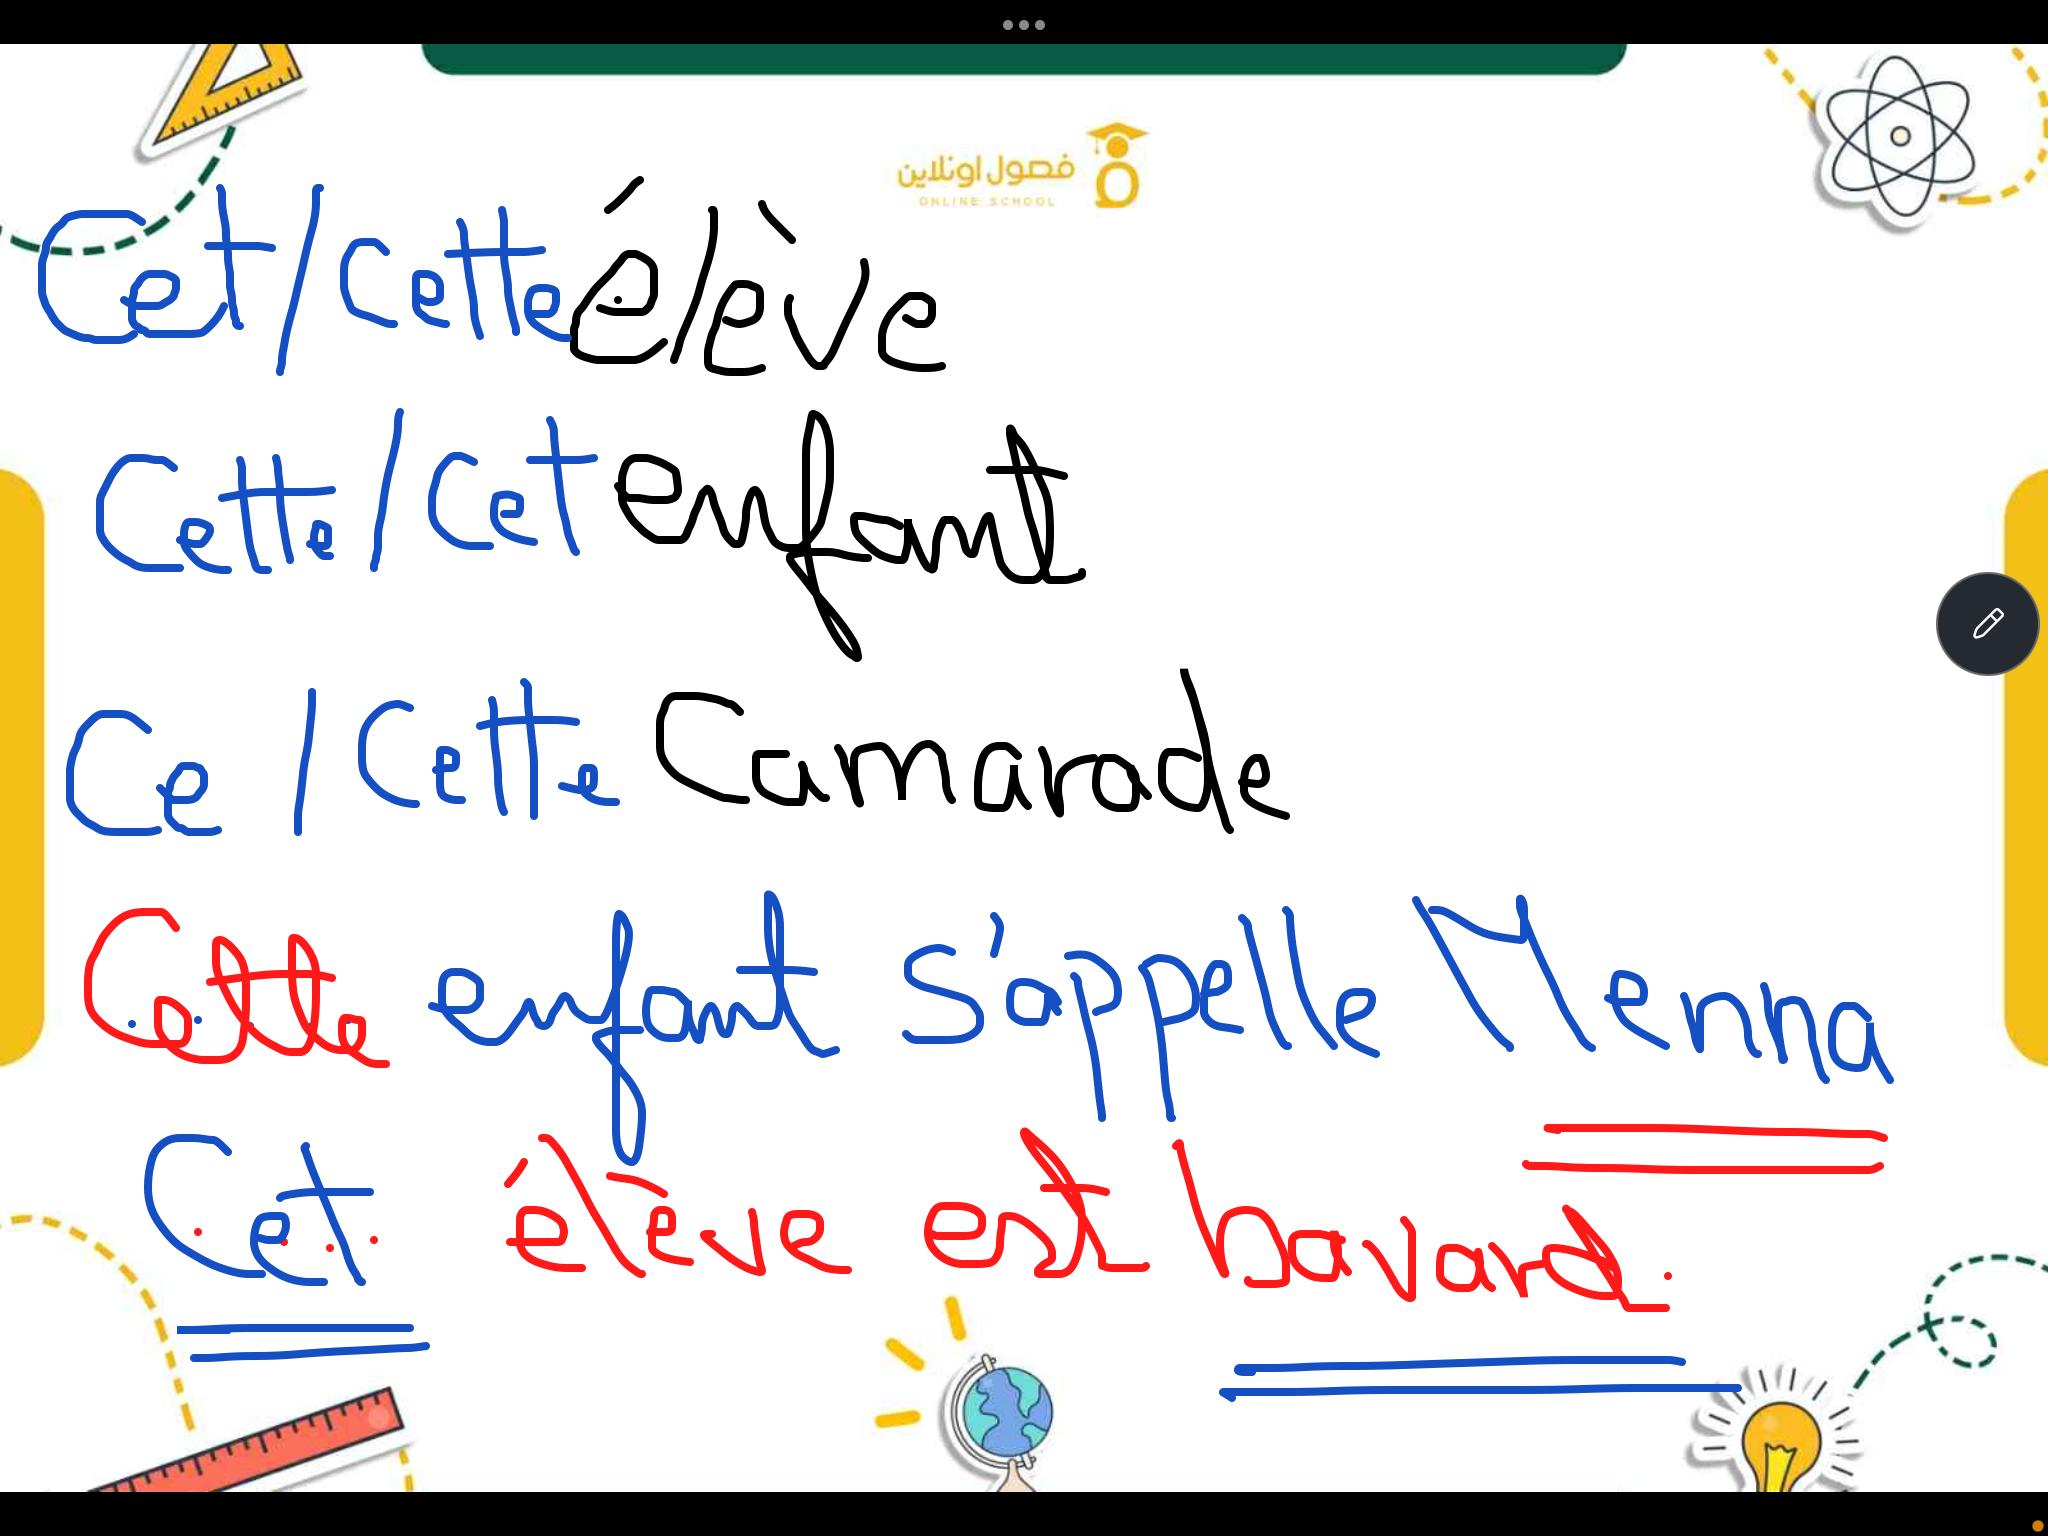 فصول اونلاين
ONLINE SCHOOL
Cet/cette élève
Cette/cet enfant
Ce/cette Camarade
Cette enfant s'appelle Menna
Cet élève est bavard.